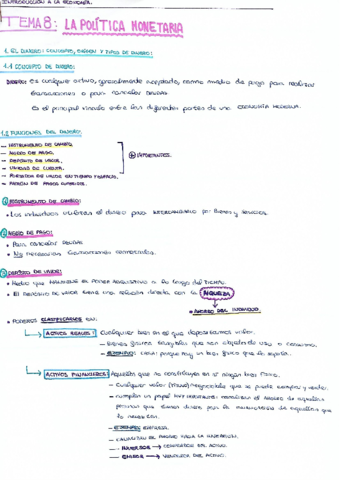 INTRODUCCIÓN A LA ECONOMÍA.
TEMA 8: LA POLÍTICA MONETARIA
1. EL DINERO: CONCEPTO, ORIGEN Y TIPOS DE DINERO:
1.1 CONCEPTO DE DINERO:
DINERO: es cualquier activo, generalmente aceptado, como medio de pago para realizar
transacciones o para cancelar DEUDAS.
Es el principal vínculo entre las diferentes partes de una ECONOMÍA MODERNA.
1.2 FUNCIONES DEL DINERO:
— INSTRUMENTO DE CAMBIO.
— MEDIO DE PAGO.
— DEPÓSITO DE VALOR.
— UNIDAD DE CUENTA.
— PORTADOR DE VALOR EN TIEMPO Y ESPACIO.
— PATRÓN DE PAGOS DIFERIDOS.
IMPORTANTES.
1 INSTRUMENTO DE CAMBIO:
• Los individuos utilizan el dinero para INTERCAMBIARLO por bienes y servicios.
2 MEDIO DE PAGO:
• Para cancelar DEUDAS
• No necesarias transacciones comerciales.
3 DEPÓSITO DE VALOR:
• Medio que MANTIENE EL PODER ADQUISITIVO a lo largo del TIEMPO.
• El DEPÓSITO DE VALOR tiene una relación directa con la RIQUEZA
→ AHORRO DEL INDIVIDUO.
• Podemos CLASIFICARLOS en:
→ ACTIVOS REALES: Cualquier bien en el que depositamos valor.
— Bienes físicos tangibles que son objeto de uso o consumo.
— EJEMPLO: casa; porque hay un bien físico que lo soporta.
→ ACTIVOS FINANCIEROS: Aquellos que no constituyen en sí ningún bien físico.
— Cualquier valor negociable que se puede comprar y vender.
— cumplen un papel muy importante: canalizan el AHORRO de aquellas
personas que tienen dinero para la de aquellos que
lo necesitan.
— EJEMPLO: EMPRESA.
— CANALIZAN EL AHORRO HACIA LA INVERSIÓN.
— INVERSOR → COMPRADOR DEL ACTIVO.
— EMISOR → VENDEDOR DEL ACTIVO.